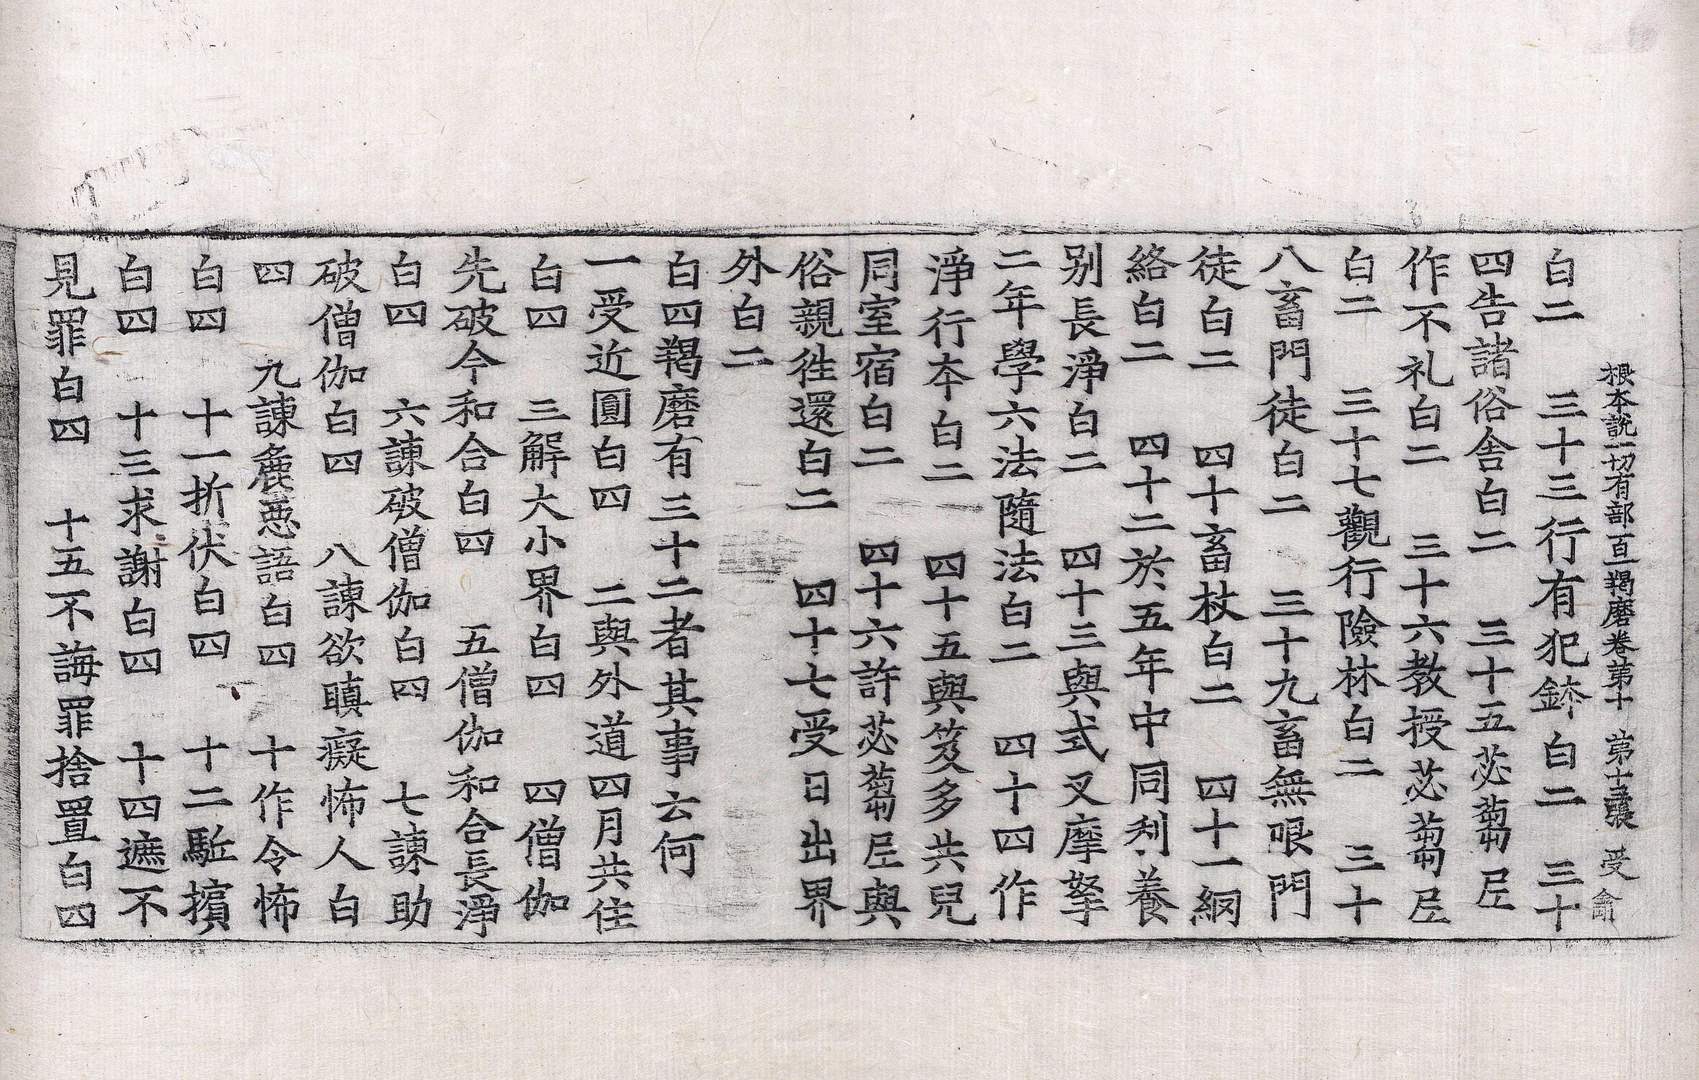 根本說一切有部百一羯磨卷第十 第十三張 受
白二 三十三行有犯鉢白二 三十
四告諸俗舍白二 三十五苾蒭尼
作不礼白二 三十六教授苾蒭尼
白二 三十七觀行險林白二 三十
八畜門徒白二 三十九畜無限門
徒白二 四十畜杖白二 四十一網
絡白二 四十二於五年中同利養
别長淨白二 四十三與式叉摩拏
二年學六法隨法白二 四十四作
淨行夲白二 四十五與笈多共兒
同室宿白二 四十六許苾蒭尼與
俗親徃還白二 四十七受日出界
外白二
白四羯磨有三十二者其事云何
一受近圓白四 二與外道四月共住
白四 三解大小界白四 四僧伽
先破今和合白四 五僧伽和合長淨
白四 六諫破僧伽白四 七諫助
破僧伽白四 八諫欲瞋癡怖人白
四 九諫麁惡語白四 十作令怖
白四 十一折伏白四 十二駈擯
白四 十三求謝白四 十四遮不
見罪白四 十五不誨罪捨置白四